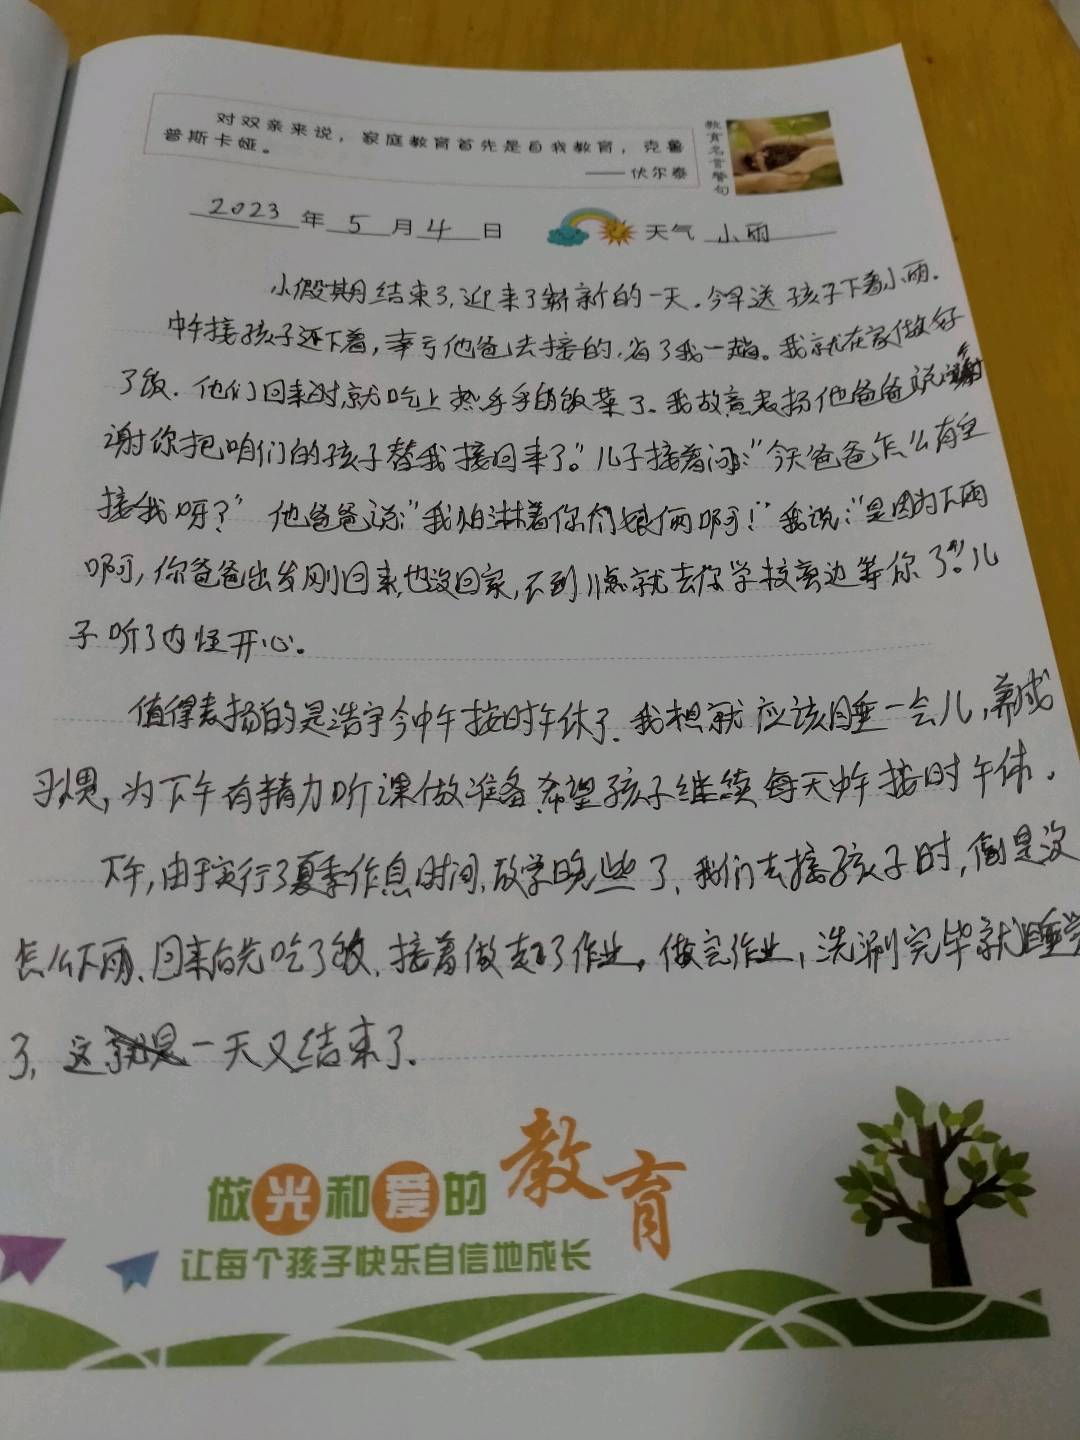 对双亲来说，家庭教育首先是自我教育，克鲁
普斯卡娅。
——伏尔泰
教育名言警句
2023年5月4日 天气 小雨
小假期结束了,迎来了崭新的一天.今早送孩子下着小雨.
中午接孩子还下着,幸亏他爸去接的,省了我一趟。我就在家做好
了饭.他们回来时就吃上热乎乎的饭菜了.我故意表扬他爸爸说:"谢
谢你把咱们的孩子替我接回来了。"儿子接着问:"今天爸爸怎么有空
接我呀?"他爸爸说:"我怕淋着你们娘俩啊!"我说:"是因为下雨
啊,你爸爸出发刚回来,也没回家,不到11点就去你学校旁边等你了。"儿
子听了内怪开心.
值得表扬的是浩宇今中午按时午休了.我想就应该睡一会儿,养成
习惯,为下午有精力听课做准备.希望孩子继续每天中午按时午休.
下午,由于实行了夏季作息时间,放学晚些了,我们去接孩子时,倒是没
怎么下雨、回来后先吃了饭.接着做起了作业,做完作业,洗涮完毕就睡觉
了,这一天又结束了.
做光和爱的教育
让每个孩子快乐自信地成长